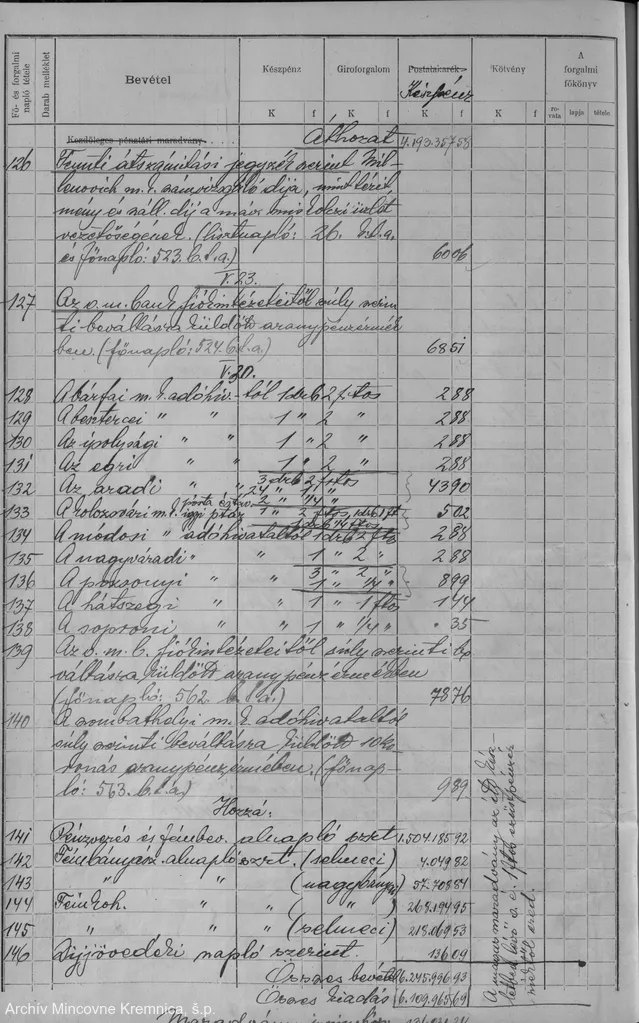 Fő- és forgalmi napló tétele
Darab melléklet
Bevétel
Készpénz
Giroforgalom
Postatakarék-
Készpénz
Kötvény
A forgalmi főkönyv
K f K f K f K f rovata lapja tétele
Kezdőleges pénztári maradvány
Áthozat 4.193.357 58
126 Fennti átszámítási jegyzék szerint Mil-
lenovich m. k. díja, mint térít-
mény és száll. díj a máv. miskolczi üzlet
vezetőségének. (lisztnapló: 26. b.t.a.
és főnapló: 523. b.t.a.) 60 06
V. 23.
127 Az o. m. bank fiókintézeteitől súly szerin
ti beváltásra küldött aranypénzérmék
ben. (főnapló: 524. b.t.a.) 68 51
V. 30.
128 A bártfai m. k. adóhiv.-tól 1 drb 2 ftos 2 88
129 A besztercei " " 1 " 2 " 2 88
130 Az ipolysági " " 1 " 2 " 2 88
131 Az egri " " 1 " 2 " 2 88
3 drb 2 ftos
132 Az aradi " " 24 " 1 " 43 90
2 " 1/4 "
133 A kolozsvári m. k. 1 " 2 ftos, 1 drb 1 ft 5 02
1 drb 1/4 ftos
134 A módosi " adóhivataltól 1 drb 2 fts 2 88
135 A nagyváradi " " 1 " 2 " 2 88
136 A pozsonyi " " 3 " 2 " 8 99
1 " 1/4 "
137 A hátszegi " " 1 " 1 ftos 1 44
138 A soproni " " 1 " 1/4 " " 35
139 Az o. m. b. fiókintézeteitől súly szerinti be
váltásra küldött aranypénzérmékben
(főnapló: 562 b.t.a.) 78 76
140 A szombathelyi m. k. adóhivataltól
súly szerinti beváltásra küldött 10 ko-
ronás aranypénzérmében. (főnap-
ló: 563. b.t.a.) 9 89
Hozzá:
141 Pénzverés és fémbev. alnapló szrt 1.504.185 92
142 Fémbányász. alnapló szrt. (selmeci) 4.049 82
143 " " (nagybányai) 57.708 84
144 Fémkoh. " ( " ) 268.194 95
145 " " (selmeci) 218.069 53
146 Díjjövedéki napló szerint. 136 09
Összes bevétel 6.245.996 93
Összes kiadás 6.109.965 69
A magyar maradvány az itt kész-
letben lévő o. é. 1 ftos ezüstpénzér-
mékből ered.
Archív Mincovne Kremnica, š.p.